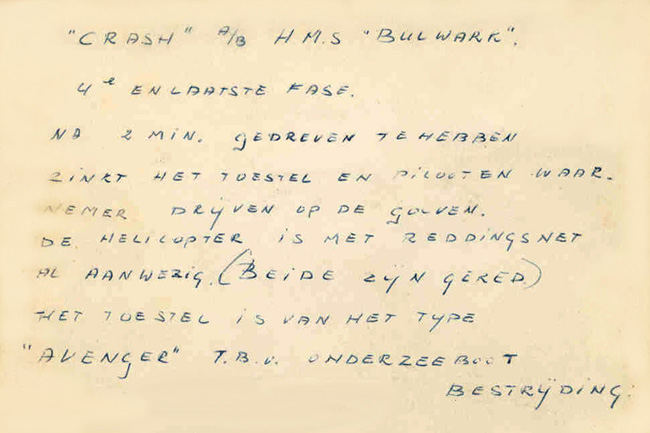 "CRASH" A/B H.M.S "BULWARK".
4e EN LAATSTE FASE.
NA 2 MIN. GEDREVEN TE HEBBEN
ZINKT HET TOESTEL EN PILOOT EN WAAR-
NEMER DRIJVEN OP DE GOLVEN.
DE HELICOPTER IS MET REDDINGSNET
AL AANWEZIG. (BEIDE ZIJN GERED)
HET TOESTEL IS VAN HET TYPE
"AVENGER" T.B.V. ONDERZEEBOOT
BESTRIJDING.